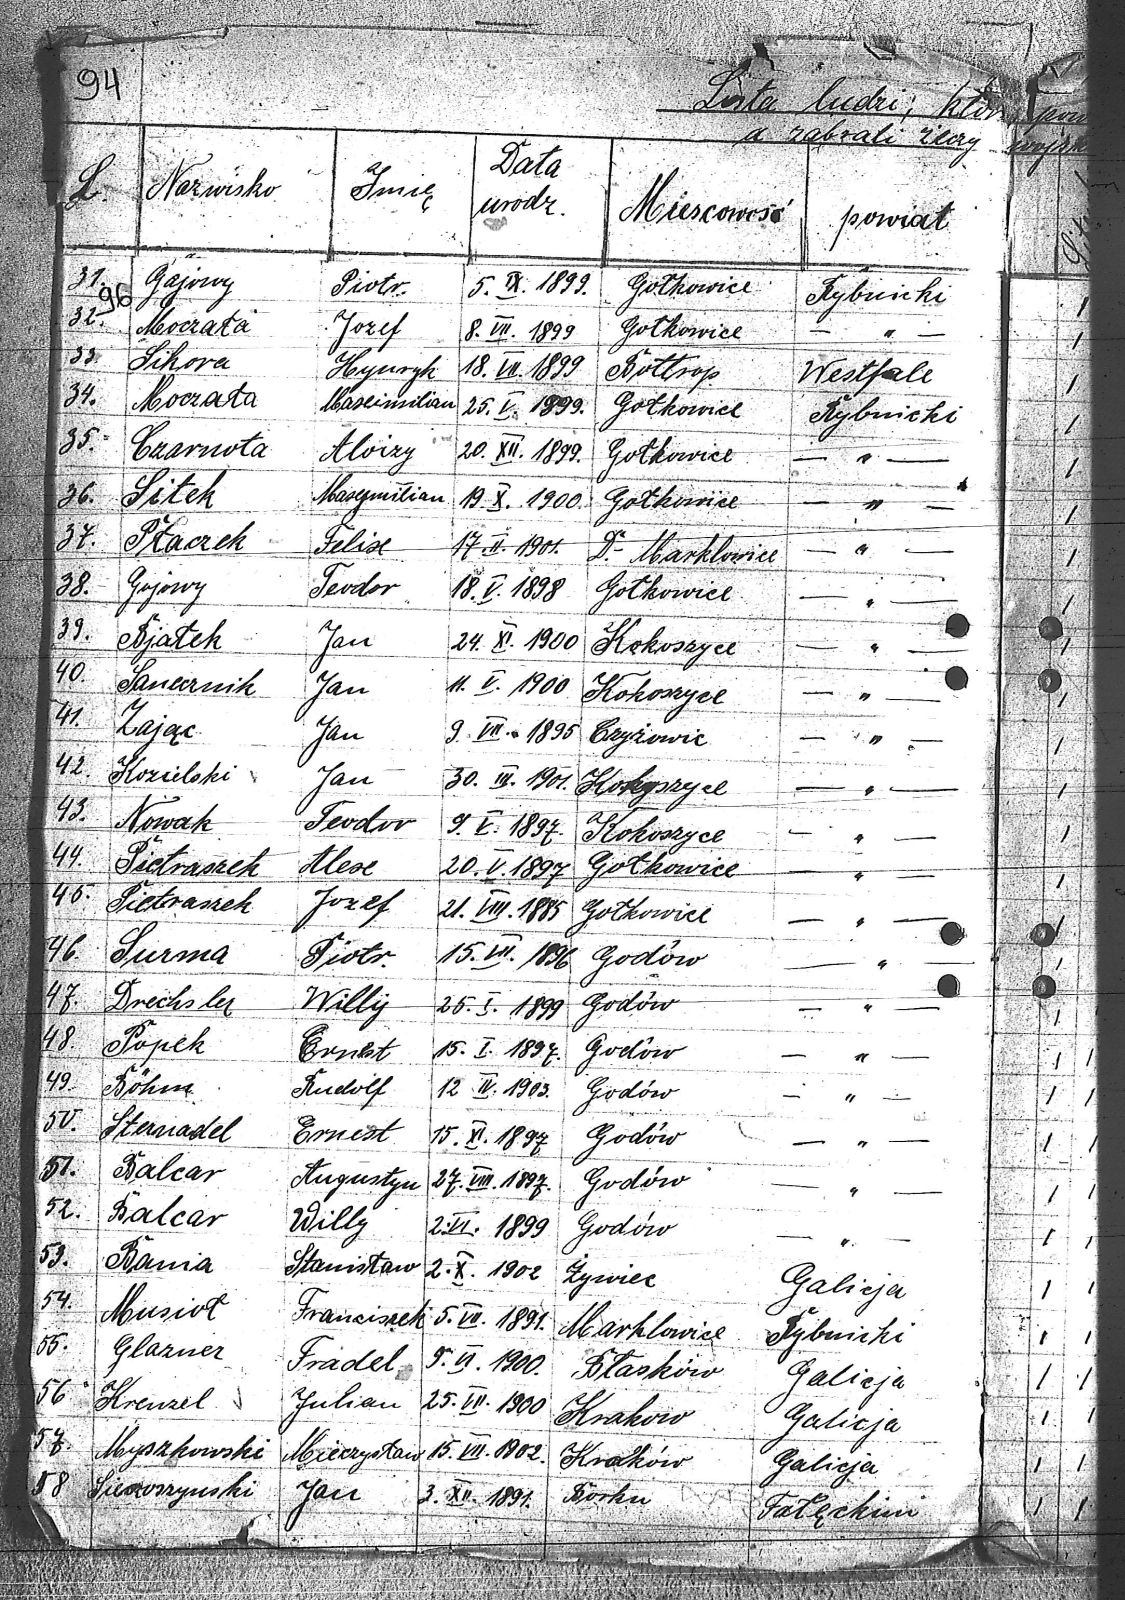 94
Lista ludzi, którz pow
a zabrali rzeczy wojsk
L. Nazwisko Imię Data urodz. Miescowość powiat
31. Gajowy Piotr. 5. IX. 1899. Gołkowice Rybnicki
96
32. Moczała Jozef 8. VII. 1899 Gołkowice — " —
33. Sikora Hynryk 18. VII. 1899 Bottrop Westfale
34. Moczała 25. V. 1899. Gołkowice Rybnicki
35. Czarnota Aloizy 20. XII. 1899. Gołkowice — " —
36. Sitek 19. X. 1900. Gołkowice — " —
37. Ptaczek Felix 17. II. 1901. D. Marklowice — " —
38. Gojowy Teodor 18. V. 1898 Gołkowice — " —
39. Bjałek Jan 24. XI. 1900 Kokoszyce — " —
40. Sanecznik Jan 11. V. 1900 Kokoszyce — " —
41. Zając Jan 9. VII. 1895 Czyżowic — " —
42. Kozielski Jan 30. III. 1901. Kokoszyce — " —
43. Nowak Teodor 9. V. 1897. Kokoszyce — " —
44. Pietraszek Alex 20. V. 1897 Gołkowice — " —
45. Pietraszek Jozef 21. VIII. 1885 Gołkowice — " —
46. Surma Piotr. 15. VII. 1896 Godów — " —
47. Drechsler Willy 25. I. 1899 Godów — " —
48. Popek Ernest 15. I. 1897. Godów — " —
49. Böhm Rudolf 12 IV. 1903. Godów — " —
50. Sternadel Ernest 15. XI. 1897 Godów — " —
51. Balcar Augustyn 27. VIII. 1897. Godów — " —
52. Balcar Willy 2. VI. 1899 Godów — " —
53. Bania Stanisław 2. X. 1902 Żywiec Galicja
54. Musioł Franciszek 5. VII. 1891. Marklowice Rybnicki
55. Glazner Fradel 9. VI. 1900. Błasków Galicja
56 Krenzel Julian 25. VII. 1900 Krakow Galicja
57. Myszkowski Mieczysław 15. VII. 1902. Kraków Galicja
58 Sieroszynski Jan 3. XII. 1891. Borku Fałęckim